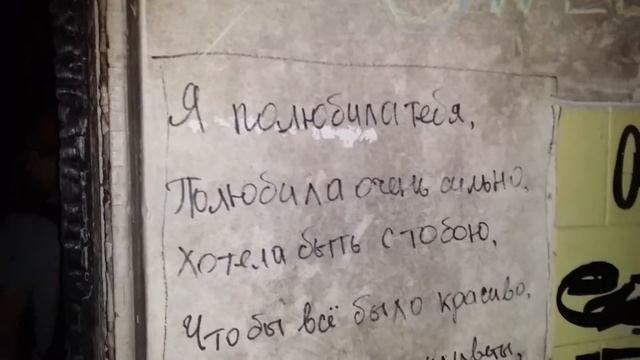 Я полюбила тебя,
Полюбила очень сильно,
Хотела быть с тобою,
Чтобы всё было красиво,